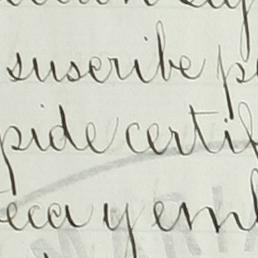 suscribe p
pide certif
eca y em